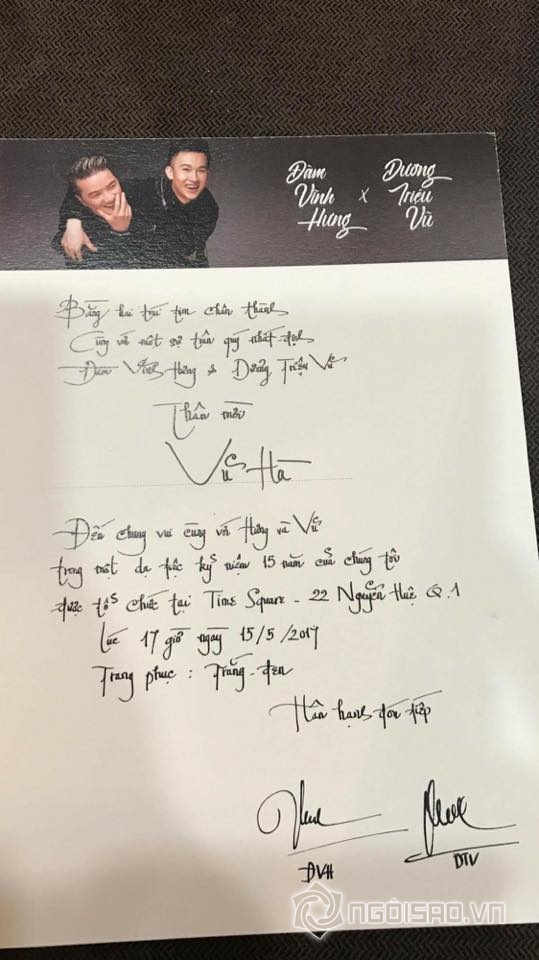 Đàm Vĩnh Hưng x Dương Triệu Vũ
Bằng hai trái tim chân thành
Cùng với một sự trân quý nhất định
Đàm Vĩnh Hưng & Dương Triệu Vũ
Thân mời
Vũ Hà
Đến chung vui cùng với Hưng và Vũ
trong một dạ tiệc kỷ niệm 15 năm của chúng tôi
được tổ chức tại Time Square - 22 Nguyễn Huệ Q.1
lúc 17 giờ ngày 15/5/2017
Trang phục : Trắng - đen
Hân hạnh đón tiếp
ĐVH
DTV
NGÔISAO.VN